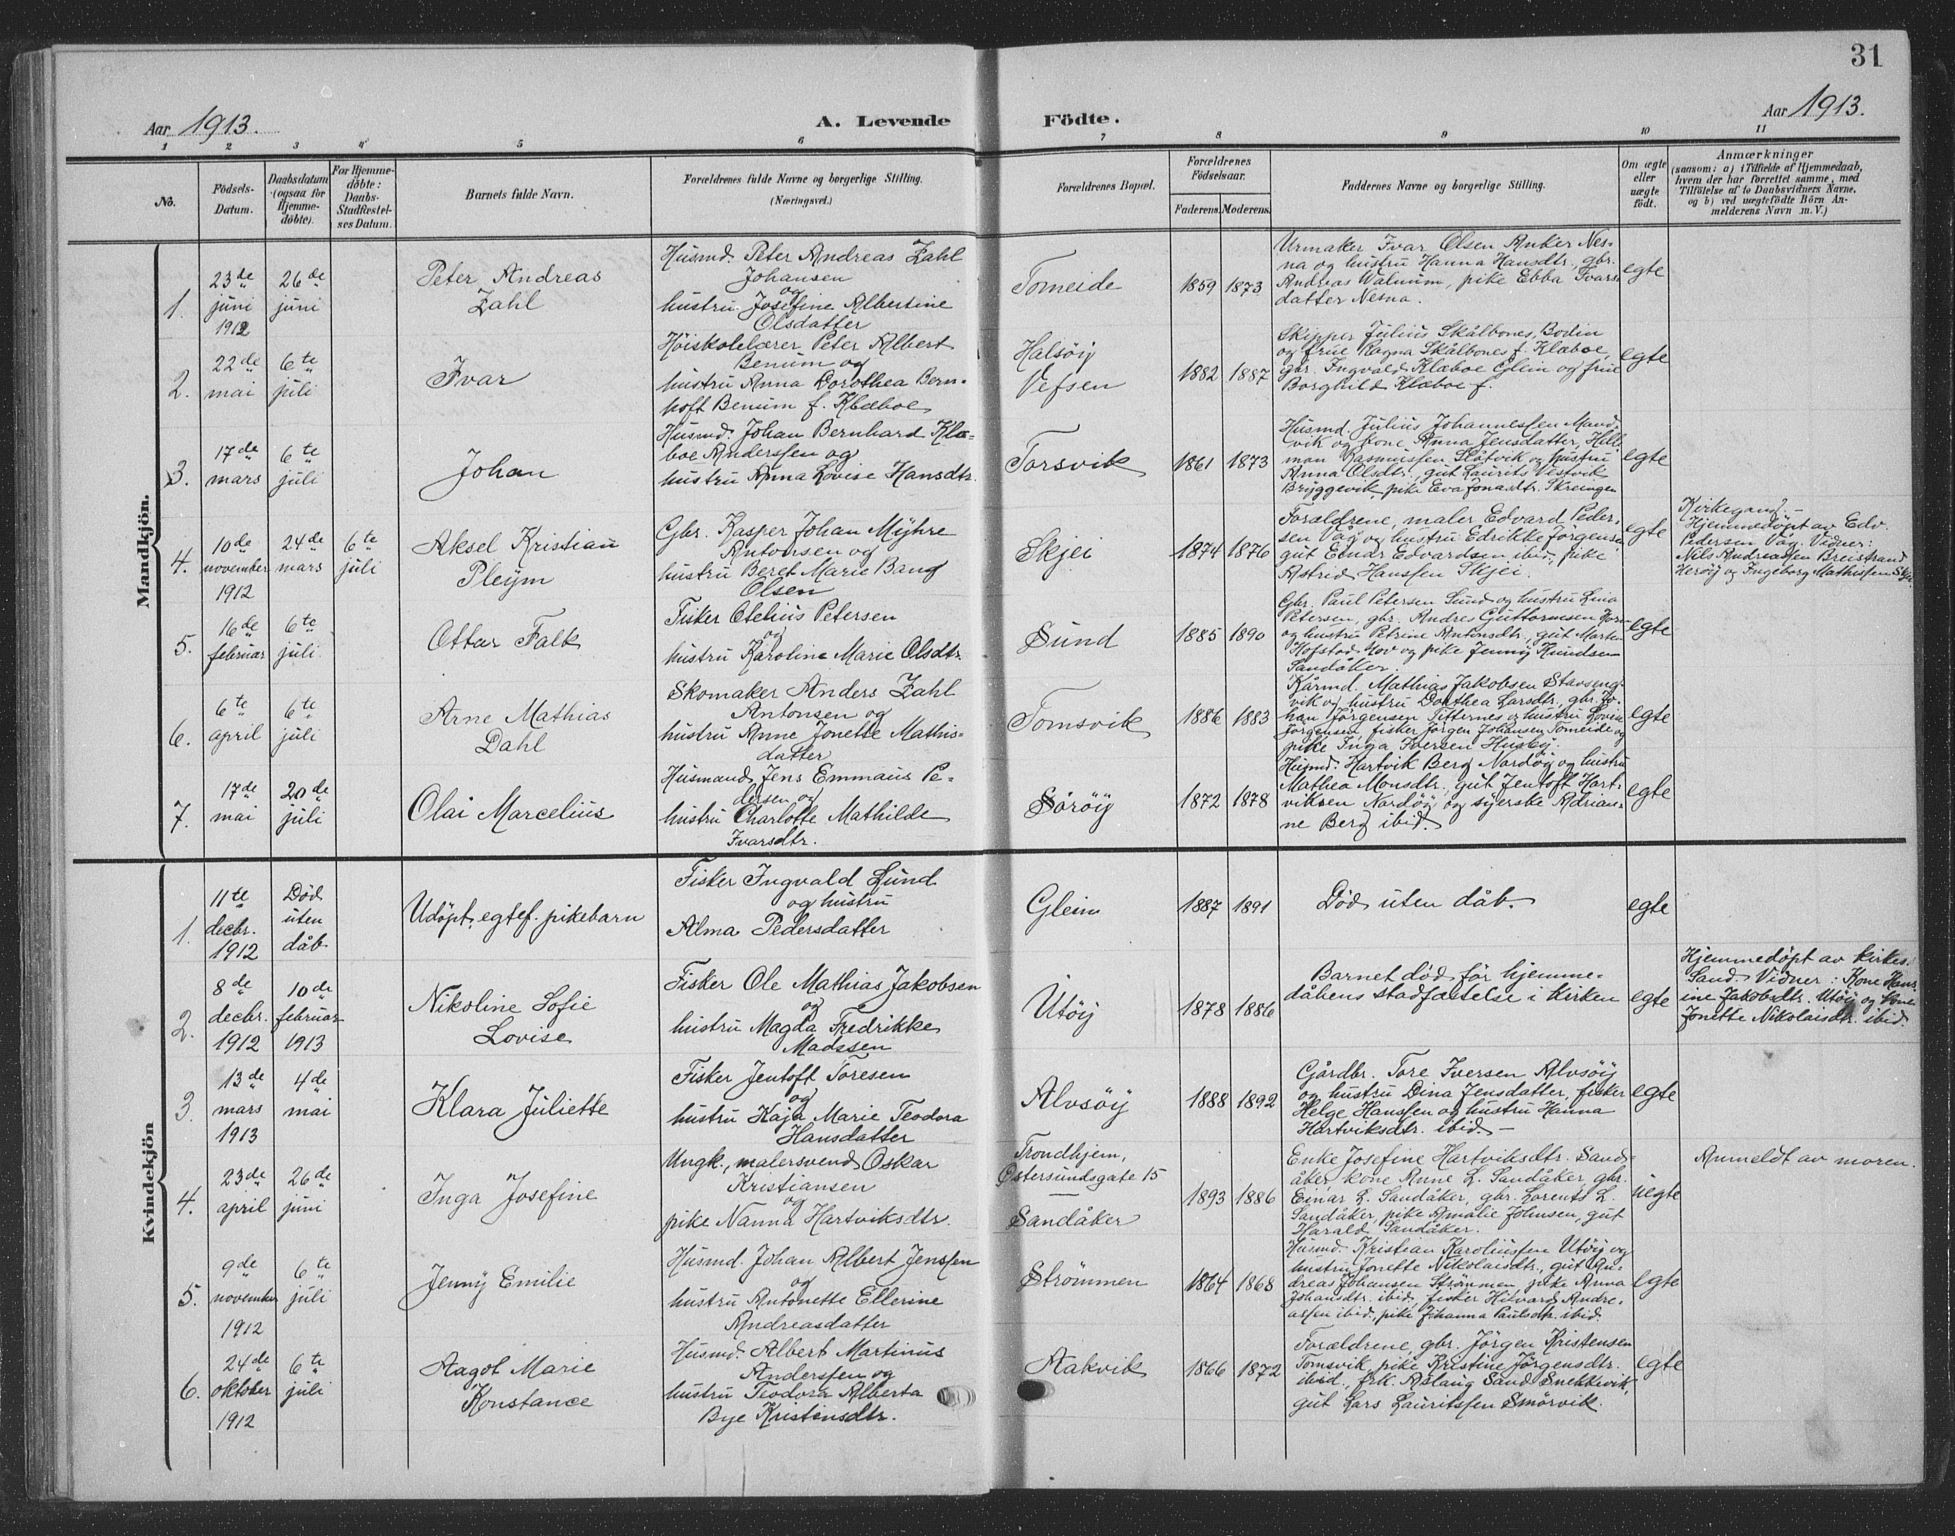 31
Aar 1913.
A. Levende
Födte.
Aar 1913.
1 2 3 4 5 6 7 8 9 10 11
No.
Födsels-
Datum.
Daabsdatum
(ogsaa for
Hjemme-
döbte).
For Hjemme-
döbte:
Daabs-
Stadfæstel-
ses Datum.
Barnets fulde Navn.
Forældrenes fulde Navne og borgerlige Stilling.
(Næringsvei.)
Forældrenes Bopæl.
Forældrenes
Födselsaar.
Faderens. Moderens.
Faddernes Navne og borgerlige Stilling.
Om ægte
eller
uægte
födt.
Anmærkninger
(samsom: a) i Tilfælde af Hjemmedaab,
hvem der har forrettet samme, med
Tilföielse af to Daabsvidners Navne,
og b) ved uægtefödte Börn An-
melderens Navn m. V.)
Mandkjön.
1.
23de
juni
1912
26de
juni
Peter Andreas
Zahl
Husmd. Peter Andreas Zahl
Johansen
og
hustru Josefine Albertine
Olsdatter
Tomeide
1859 1873
Urmaker Ivar Olsen Anker Nes-
na og hustru Hanna Hansdtr. gbr.
Andreas Walnum, pike Ebba Ivars-
datter Nesna.
egte
2.
22de
mai
6te
juli
Ivar
Höiskolelærer Peter Albert
Benum og
hustru Anna Dorothea Bern-
hoft Benum f. Klæboe
Halsöy
Vefsen
1882 1887
Skipper Julius Skålbones, Bodin
og frue Ragna Skålbones f. Klæboe,
gbr. Ingvald Klæboe Glein og frue
Borghild Klæboe f.
egte
3.
17de
mars
6te
juli
Johan
Husmd. Johan Bernhard Klæ-
boe Anderssen og
hustru Anna Lovise Hansdtr.
Torsvik
1861 1873
Husmd. Julius Johannessen Mand-
vik og kone Anna Jensdatter, Hell-
man Rasmussen Slötvik og hustru
Anna Olsdtr, gut Laurits Vestvik
Bryggevik, pike Eva Jonasdtr. Skreingen
egte
4.
10de
november
1912
24de
mars
6te
juli
Aksel Kristian
Pleym
Gbr. Kasper Johan Myhre
Antonsen og
hustru Beret Marie Bang
Olsen
Skjei
1874 1876
Forældrene, maler Edvard Peder-
sen Våg og hustru Edrikke Jörgensen
gut Einar Edvardsen ibid., pike
Astrid Hanssen Skjei.
egte
Kirkegand?
Hjemmedöpt av Edv.
Pedersen Våg. Vidner:
Nils Andreassen Breistrand
Heröy og Ingeborg Mathissen Skjei
5.
16de
februar
6te
juli
Ottar Falk
Fisker Otelius Petersen
og
hustru Karoline Marie Olsdtr.
Sund
1885 1890
Gbr. Paul Petersen Sund og hustru Lina
Petersen, gbr. Andres Guttormsen
og hustru Petrine Antonsdtr., gut Marten
Hofstad Nov og pike Jenny Knudsen
Sandåker.
egte
6.
6te
april
6te
juli
Arne Mathias
Dahl
Skomaker Anders Zahl
Antonsen og
hustru Anne Jonette Mathis-
datter
Tomsvik
1886 1883
Kårmd. Mathias Jakobsen Stavseng-
vik og hustru Dorthea Larsdtr., gbr. Jo-
han Jörgensen Titternes og hustru Lovise
Jörgensen, fisker Jörgen Johansen Tomeide og
pike Inga Iversen Husby.
egte
7.
17de
mai
20de
juli
Olai Marcelius
Husmand Jens Emmaus Pe-
dersen og
hustru Charlotte Mathilde
Ivarsdtr.
Söröy
1872 1878
Husmd. Hartvik Berg Nordöy og hustru
Mathea Monsdtr., gut Jentoft Hart-
viksen Nordöy og syerske Adrian-
ne Berg ibid.
egte
Kvindekjön
1.
11te
decbr.
1912
Död
uten
dåb
Udöpt egtef. pikebarn
Fisker Ingvald Lund
og hustru
Alma Pedersdatter
Glein
1887 1891
Död uten dåb.
egte
2.
8de
decbr.
1912
10de
februar
1913
Nikoline Sofie
Lovise
Fisker Ole Mathias Jakobsen
og
hustru Magda Fredrikke
Madssen
Utöy
1878 1886
Barnet död för hjemme-
dåbens stadfæstelse i kirken
egte
Hjemmedöpt av kirkes.
Sand. Vidner: Kone Hans-
ine Jakobsdtr. Utöy og Kone
Jonette Nikolaisdtr. ibid.
3.
13de
mars
1913
4de
mai
Klara Juliette
Fisker Jentoft Toresen
og
hustru Kaja Marie Teodora
Hansdatter
Alvsöy
1888 1892
Gårdbr. Tore Iversen Alvsöy
og hustru Dina Jensdatter, fisker
Helge Hanssen og hustru Hanna
Hartviksdtr. ibid.
egte
4.
23de
april
26de
juni
Inga Josefine
Ungk., malersvend Oskar
Kristiansen
og
pike Nanna Hartviksdtr.
Trondhjem,
Östersundsgate 15
Sandåker
1893 1886
Enke Josefine Hartviksdtr. Sand-
åker, kone Anne L. Sandåker, gbr.
Einar L. Sandåker, gbr. Lorents L.
Sandåker, pike Amalie Johnsen, gut
Harald Sandåker.
uegte
Anmeldt av moren.
5.
9de
november
1912
6te
juli
Jenny Emilie
Husmd. Johan Albert Jenssen
og
hustru Antonette Ellerine
Andreasdatter
Strömmen
1864 1868
Husmd. Kristian Karoliussen Utöy og
hustru Jonette Nikolaisdtr., gut An-
dreas Johansen Strömmen, pike Anna
Johansdtr. ibid, fisker Hilvard Andre-
assen ibid., pike Johanna Paulsdtr. ibid.
egte
6.
24de
oktober
1912
6te
juli
Aagot Marie
Konstance
Husmd. Albert Martinus
Anderssen og
hustru Teodora Alberta
Bye Kristensdtr.
Aakvik
1866 1872
Forældrene, gbr. Jörgen Kristensen
Tomsvik, pike Kristine Jörgensdtr.
ibid. frk. Aslaug Sand Snekkevik,
gut Lars Lauritssen Smörvik.
egte